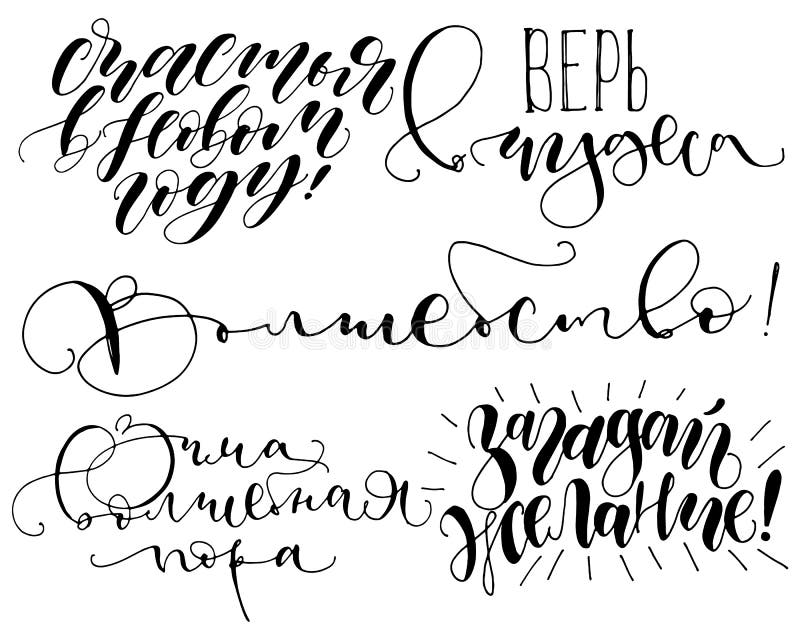 Счастья
в Новом
году!
ВЕРЬ
в чудеса
Волшебство!
Зима
волшебная
пора
Загадай
желание!